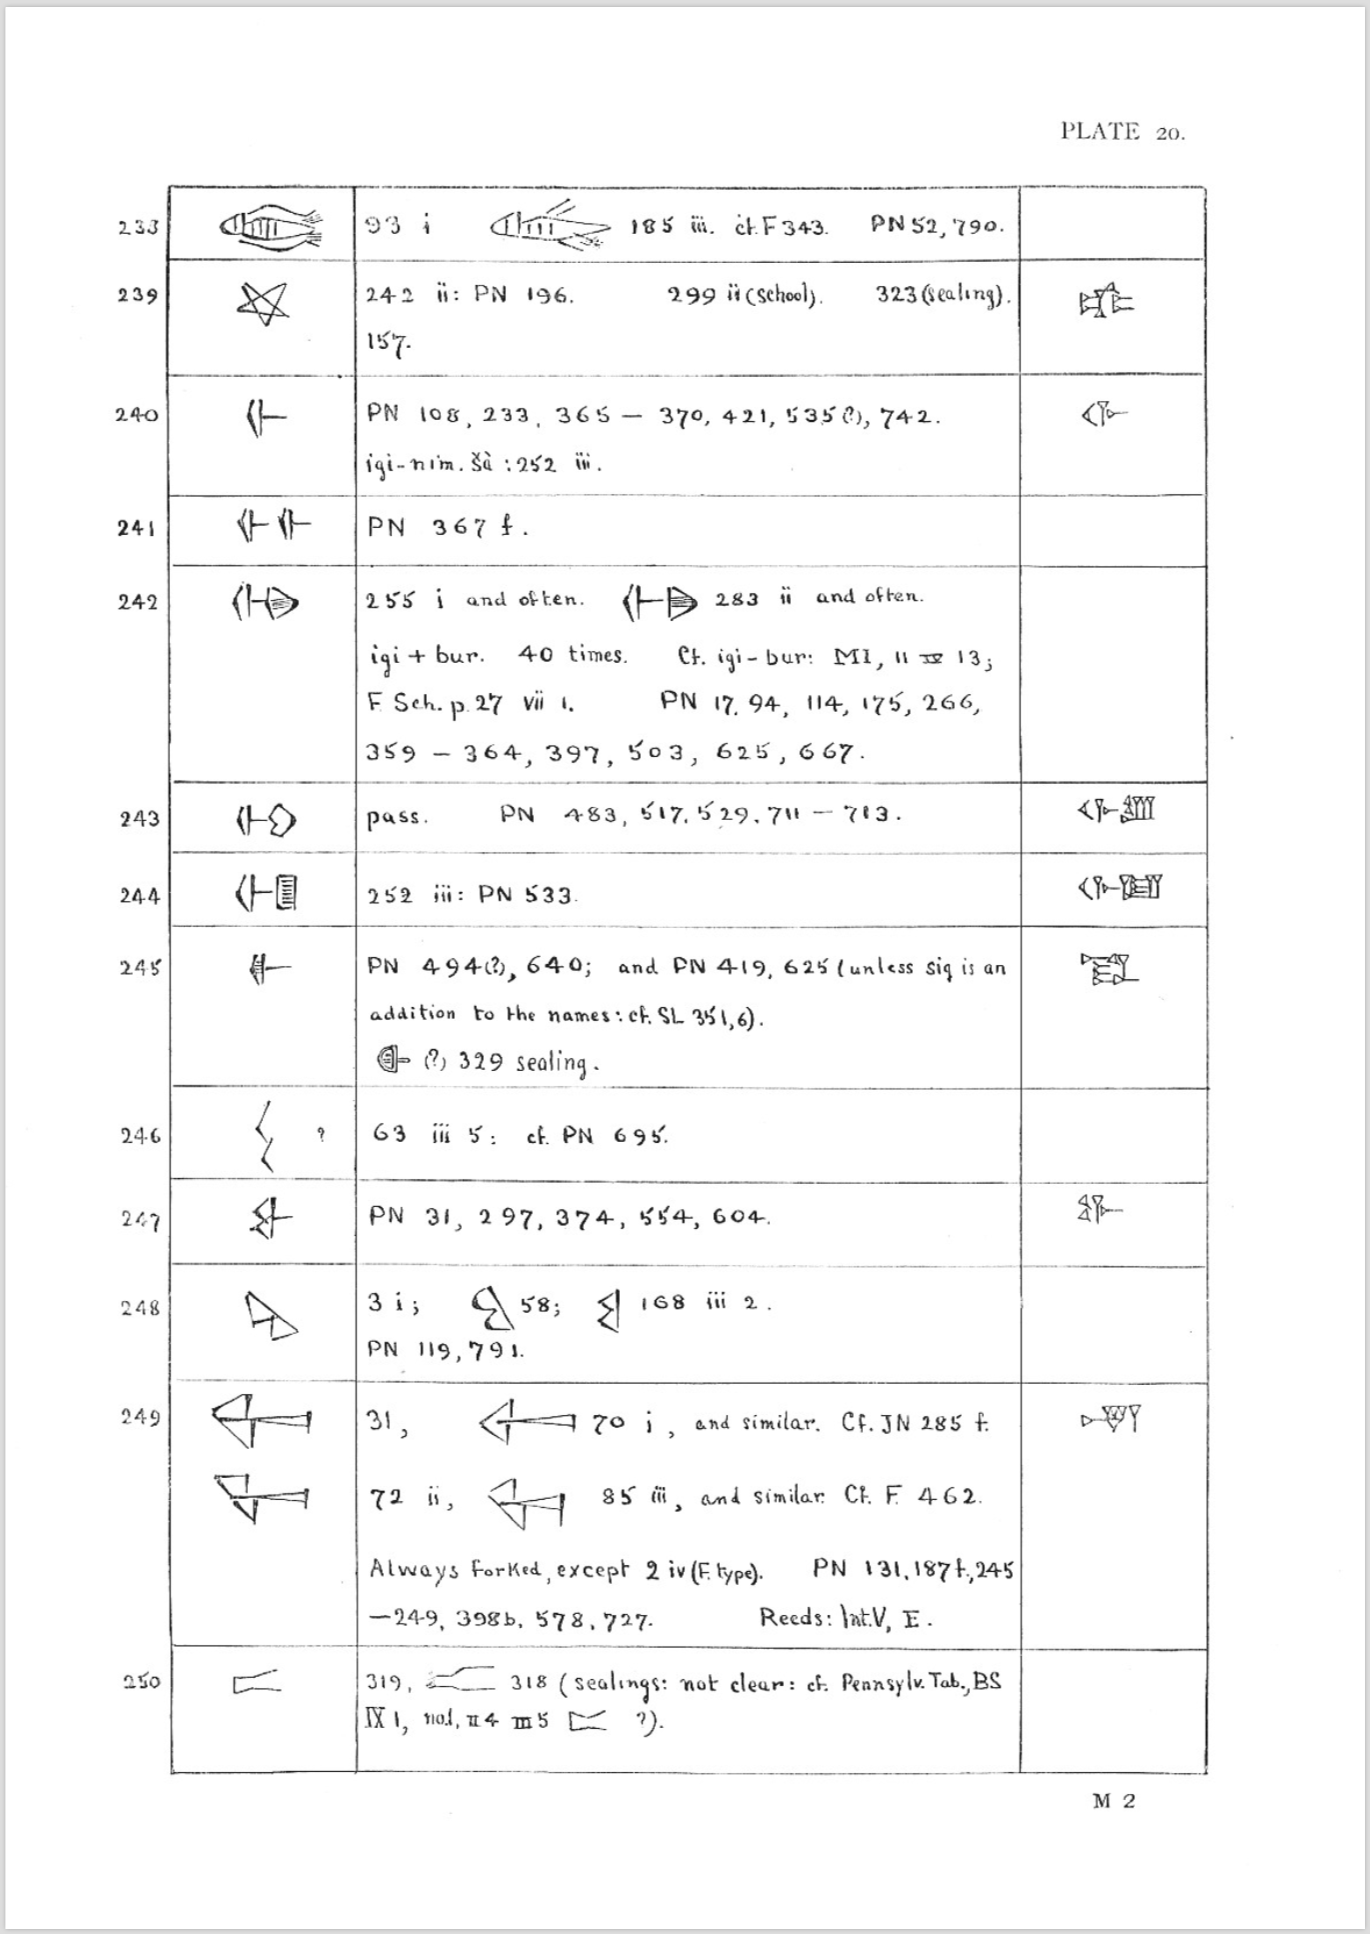 PLATE 20.
233 93 i 185 iii. cf. F 343. PN 52, 790.
239 242 ii: PN 196. 299 ii (school). 323 (sealing).
157.
240 PN 108, 233, 365 — 370, 421, 535 (?), 742.
igi-nim. šà : 252 iii.
241 PN 367 f.
242 255 i and often. 283 ii and often.
igi + bur. 40 times. Cf. igi-bur: MI, 11 IV 13;
F. Sch. p. 27 vii 1. PN 17, 94, 114, 175, 266,
359 — 364, 397, 503, 625, 667.
243 pass. PN 483, 517, 529, 711 — 713.
244 252 iii: PN 533.
245 PN 494 (?), 640; and PN 419, 625 (unless sig is an
addition to the names: cf. SL 351, 6).
(?) 329 sealing.
246 ? 63 iii 5: cf. PN 695.
247 PN 31, 297, 374, 554, 604.
248 3 i; 58; 168 iii 2.
PN 119, 791.
249 31, 70 i, and similar. Cf. JN 285 f.
72 ii, 85 iii, and similar. Cf. F. 462.
Always forked, except 2 iv (F. type). PN 131, 187 f., 245
— 249, 398b, 578, 727. Reeds: Int. V, E.
250 319, 318 (sealings: not clear: cf. Pennsylv. Tab., BS
IX 1, no. 1, II 4 III 5 ?).
M 2